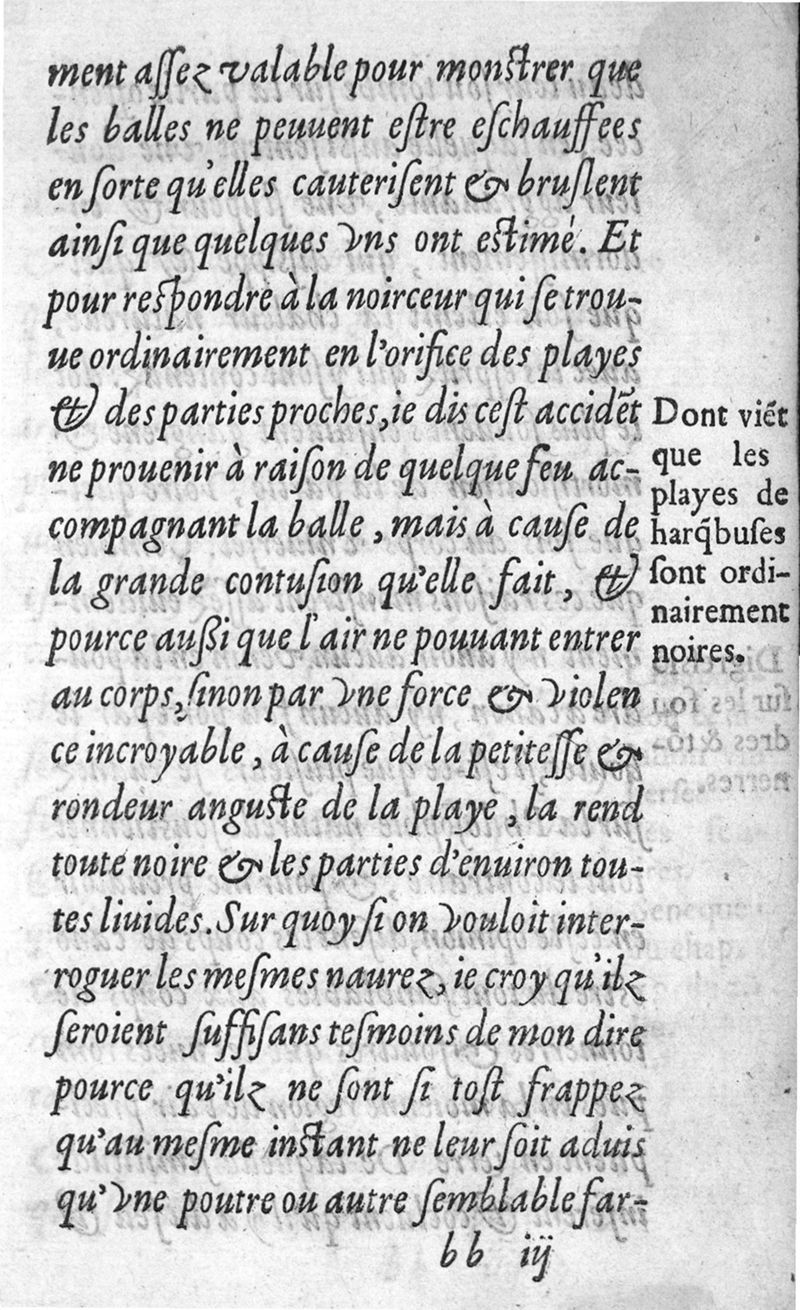 ment aſſez valable pour monſtrer que
les balles ne peuuent eſtre eſchauffees
en ſorte qu'elles cauteriſent & bruſlent
ainſi que quelques vns ont eſtimé. Et
pour reſpondre à la noirceur qui ſe trou-
ue ordinairement en l'orifice des playes
& des parties proches, ie dis ceſt accidẽt
ne prouenir à raiſon de quelque feu ac-
compagnant la balle, mais à cauſe de
la grande contuſion qu'elle fait, &
pource außi que l'air ne pouuant entrer
au corps, ſinon par vne force & violen
ce incroyable, à cauſe de la petiteſſe &
rondeur anguſte de la playe, la rend
toute noire & les parties d'enuiron tou-
tes liuides. Sur quoy ſi on vouloit inter-
roguer les meſmes naurez, ie croy qu'ilz
ſeroient ſuffiſans teſmoins de mon dire
pource qu'ilz ne ſont ſi toſt frappez
qu'au meſme inſtant ne leur ſoit aduis
qu'vne poutre ou autre ſemblable far-
bb iij
Dont viẽt
que les
playes de
harq̃buſes
ſont ordi-
nairement
noires.